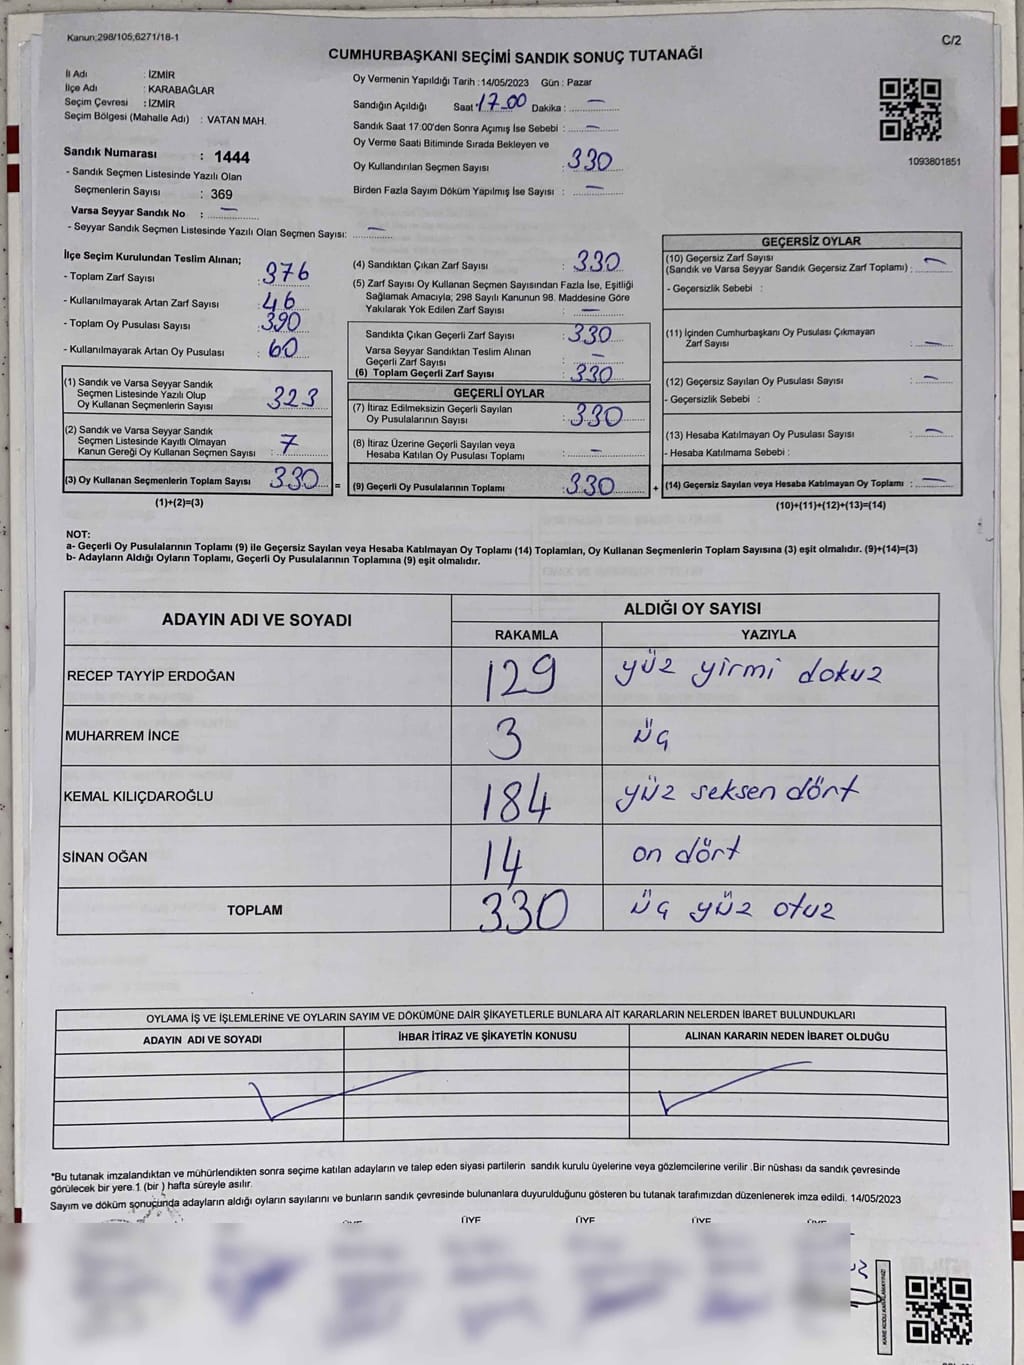 Kanun:298/105,6271/18-1
C/2
CUMHURBAŞKANI SEÇİMİ SANDIK SONUÇ TUTANAĞI
İl Adı : İZMİR
İlçe Adı : KARABAĞLAR
Seçim Çevresi : İZMİR
Seçim Bölgesi (Mahalle Adı) : VATAN MAH.
Sandık Numarası : 1444
- Sandık Seçmen Listesinde Yazılı Olan
Seçmenlerin Sayısı : 369
Varsa Seyyar Sandık No : —
- Seyyar Sandık Seçmen Listesinde Yazılı Olan Seçmen Sayısı: —
Oy Vermenin Yapıldığı Tarih : 14/05/2023 Gün : Pazar
Sandığın Açıldığı Saat : 17.00 Dakika : —
Sandık Saat 17:00'den Sonra Açımış İse Sebebi : —
Oy Verme Saati Bitiminde Sırada Bekleyen ve
Oy Kullandırılan Seçmen Sayısı : 330
Birden Fazla Sayım Döküm Yapılmış İse Sayısı : —
1093801851
İlçe Seçim Kurulundan Teslim Alınan;
- Toplam Zarf Sayısı : 376
- Kullanılmayarak Artan Zarf Sayısı : 46
- Toplam Oy Pusulası Sayısı : 390
- Kullanılmayarak Artan Oy Pusulası : 60
(1) Sandık ve Varsa Seyyar Sandık
Seçmen Listesinde Yazılı Olup
Oy Kullanan Seçmenlerin Sayısı : 323
(2) Sandık ve Varsa Seyyar Sandık
Seçmen Listesinde Kayıtlı Olmayan
Kanun Gereği Oy Kullanan Seçmen Sayısı : 7
(3) Oy Kullanan Seçmenlerin Toplam Sayısı 330 =
(1)+(2)=(3)
(4) Sandıktan Çıkan Zarf Sayısı : 330
(5) Zarf Sayısı Oy Kullanan Seçmen Sayısından Fazla İse, Eşitliği
Sağlamak Amacıyla; 298 Sayılı Kanunun 98. Maddesine Göre
Yakılarak Yok Edilen Zarf Sayısı : —
Sandıkta Çıkan Geçerli Zarf Sayısı : 330
Varsa Seyyar Sandıktan Teslim Alınan
Geçerli Zarf Sayısı : —
(6) Toplam Geçerli Zarf Sayısı : 330
GEÇERLİ OYLAR
(7) İtiraz Edilmeksizin Geçerli Sayılan
Oy Pusulalarının Sayısı : 330
(8) İtiraz Üzerine Geçerli Sayılan veya
Hesaba Katılan Oy Pusulası Toplamı : —
(9) Geçerli Oy Pusulalarının Toplamı : 330 +
GEÇERSİZ OYLAR
(10) Geçersiz Zarf Sayısı
(Sandık ve Varsa Seyyar Sandık Geçersiz Zarf Toplamı) : —
- Geçersizlik Sebebi :
(11) İçinden Cumhurbaşkanı Oy Pusulası Çıkmayan
Zarf Sayısı : —
(12) Geçersiz Sayılan Oy Pusulası Sayısı : —
- Geçersizlik Sebebi :
(13) Hesaba Katılmayan Oy Pusulası Sayısı : —
- Hesaba Katılmama Sebebi :
(14) Geçersiz Sayılan veya Hesaba Katılmayan Oy Toplamı : —
(10)+(11)+(12)+(13)=(14)
NOT:
a- Geçerli Oy Pusulalarının Toplamı (9) ile Geçersiz Sayılan veya Hesaba Katılmayan Oy Toplamı (14) Toplamları, Oy Kullanan Seçmenlerin Toplam Sayısına (3) eşit olmalıdır. (9)+(14)=(3)
b- Adayların Aldığı Oyların Toplamı, Geçerli Oy Pusulalarının Toplamına (9) eşit olmalıdır.
ADAYIN ADI VE SOYADI ALDIĞI OY SAYISI
RAKAMLA YAZIYLA
RECEP TAYYİP ERDOĞAN 129 yüz yirmi dokuz
MUHARREM İNCE 3 üç
KEMAL KILIÇDAROĞLU 184 yüz seksen dört
SİNAN OĞAN 14 on dört
TOPLAM 330 üç yüz otuz
OYLAMA İŞ VE İŞLEMLERİNE VE OYLARIN SAYIM VE DÖKÜMÜNE DAİR ŞİKAYETLERLE BUNLARA AİT KARARLARIN NELERDEN İBARET BULUNDUKLARI
ADAYIN ADI VE SOYADI İHBAR İTİRAZ VE ŞİKAYETİN KONUSU ALINAN KARARIN NEDEN İBARET OLDUĞU
*Bu tutanak imzalandıktan ve mühürlendikten sonra seçime katılan adayların ve talep eden siyasi partilerin sandık kurulu üyelerine veya gözlemcilerine verilir .Bir nüshası da sandık çevresinde
görülecek bir yere.1 (bir ) hafta süreyle asılır.
Sayım ve döküm sonucunda adayların aldığı oyların sayılarını ve bunların sandık çevresinde bulunanlara duyurulduğunu gösteren bu tutanak tarafımızdan düzenlenerek imza edildi. 14/05/2023
ÜYE ÜYE ÜYE ÜYE ÜYE